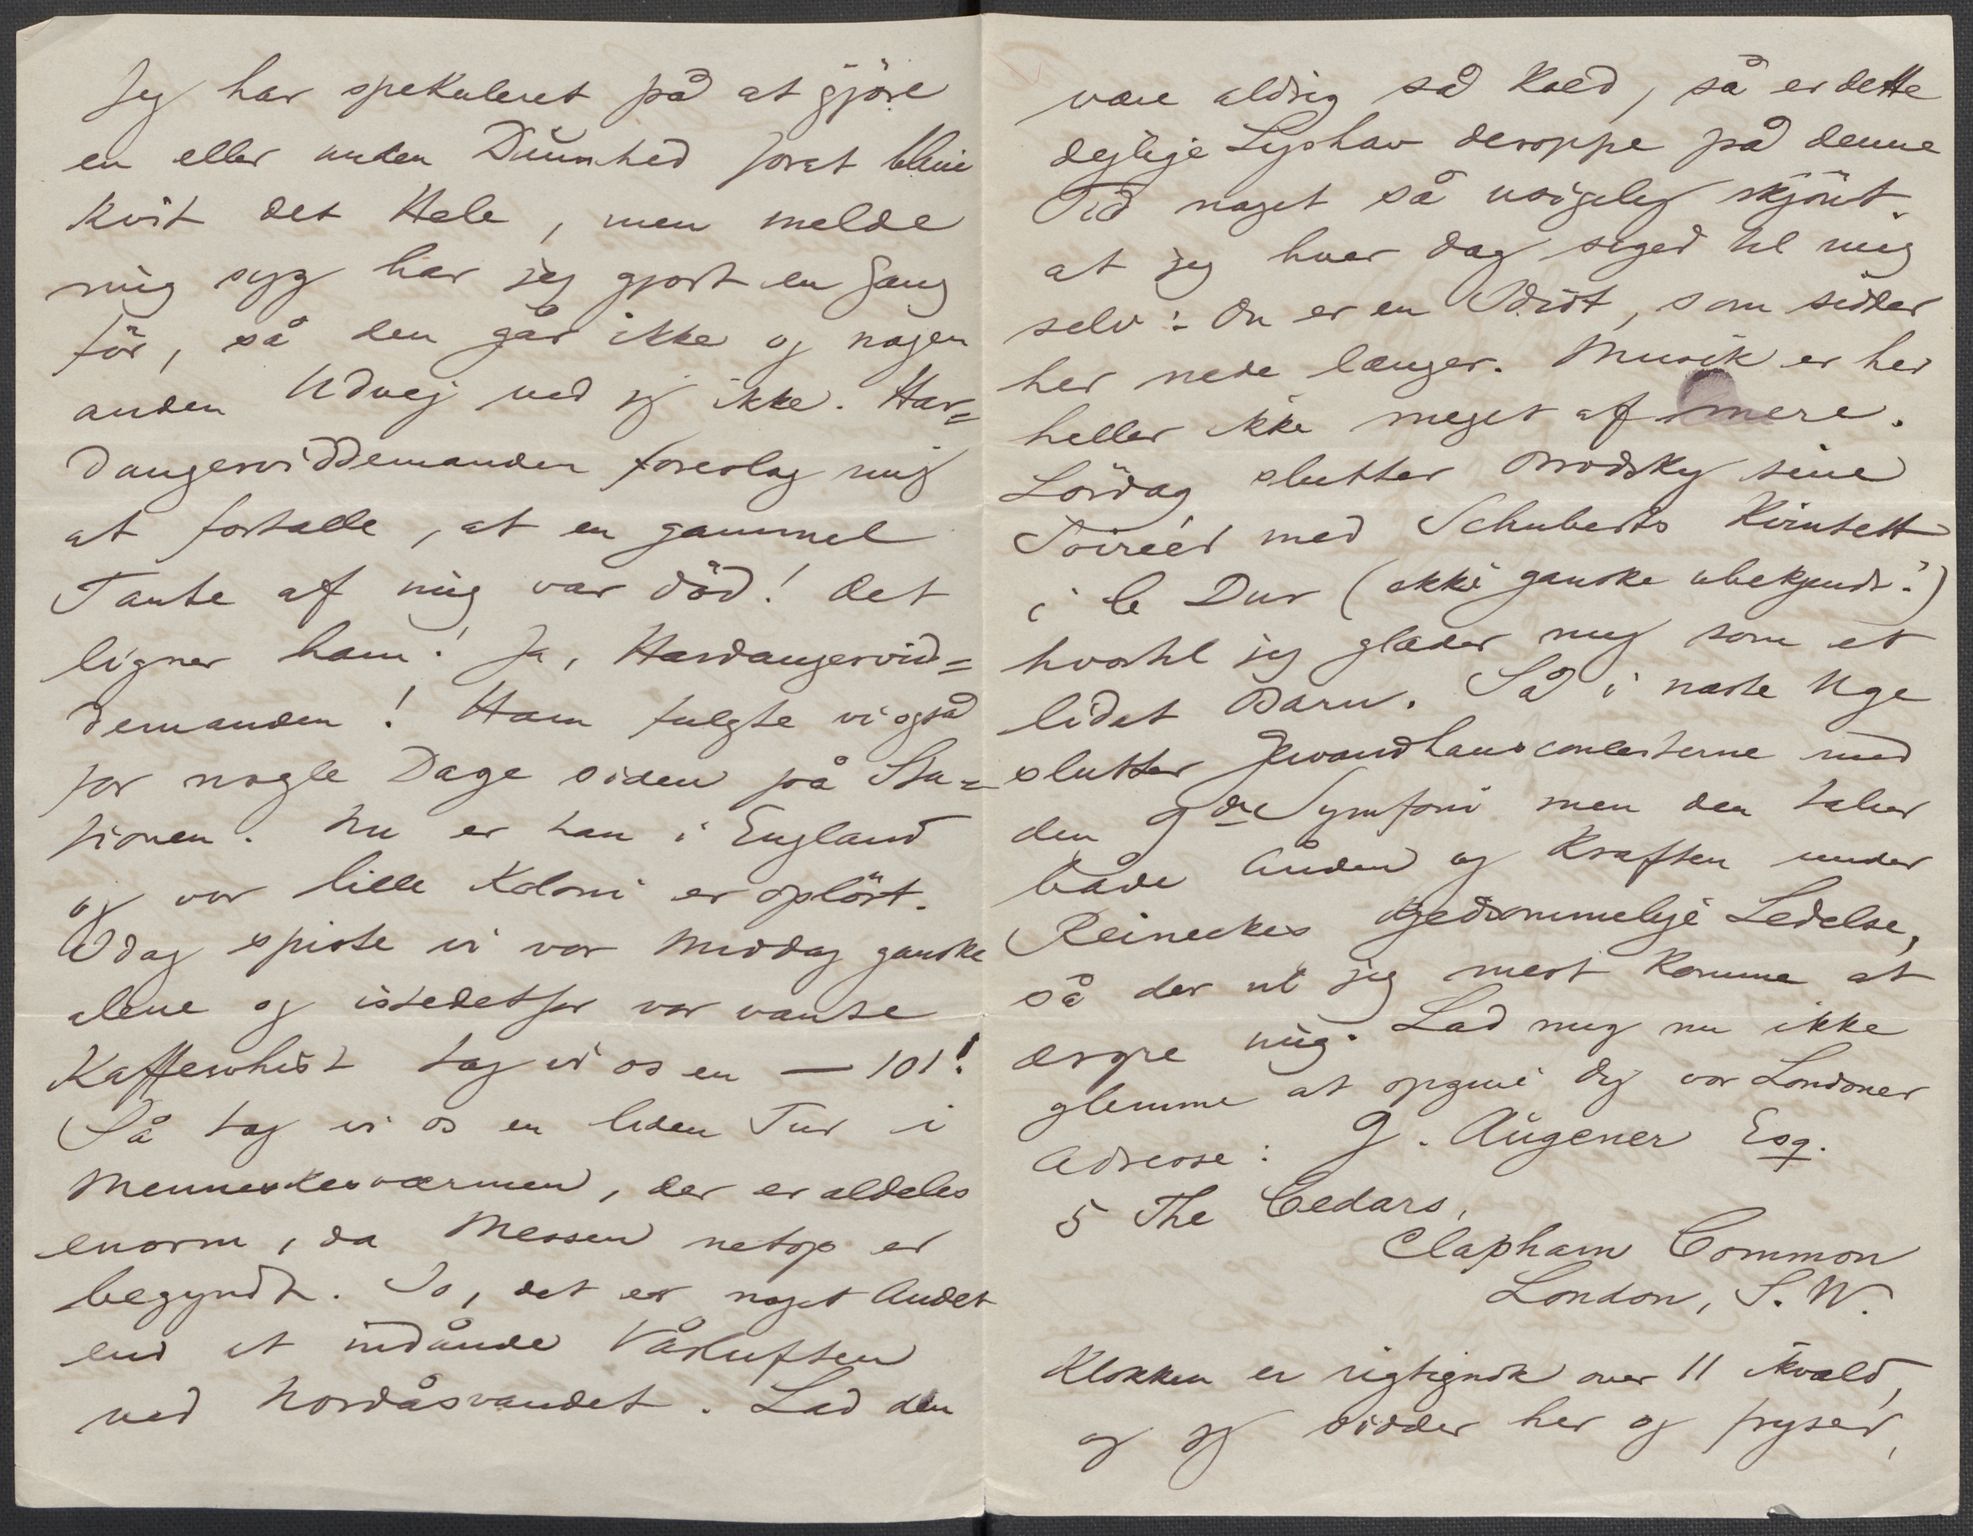 Jeg har spekuleret på at gjöre
en eller anden Dumhed forat blive
kvit det Hele, men melde
mig syg har jeg gjort en Gang
för, så den går ikke og nogen
anden Udvej ved jeg ikke. Har=
dangerviddemanden foreslog mig
at fortælle, at en gammel
Tante af mig var död! Det
ligner ham! Ja, Hardangervid=
demanden! Ham fulgte vi også
for nogle Dage siden på Sta=
tionen. Nu er han i England
og vor lille Koloni er oplöst.
Idag spiste vi vor Middag ganske
alene og istedetfor vor vante
Kaffewhist tog vi os en — 101!
Så tog vi os en liden Tur i
Menneskesværmen, der er aldeles
enorm, da Messen netop er
begyndt. Jo, det er noget Andet
end at indånde Vårluften
ved Nordåsvandet. Lad den
være aldrig så kold, så er dette
dejlige Lyshav deroppe på denne
Tid noget så usigelig skjönt,
at jeg hver Dag siger til mig
selv: Du er en Idiot, som sidder
her nede længer. Musik er her
heller ikke meget af mere.
Lördag slutter Brodsky sine
Soireer med Schuberts Kvintett
i C Dur (ikke ganske ubekjendt!)
hvortil jeg glæder mig som et
lidet Barn. Så i næste Uge
slutter Gewandhausconcerterne med
den 9de Symfoni men den taber
både Ånden og Kraften under
Reineckes kjedsommelige Ledelse,
så der vil jeg mest komme at
ærgre mig. Lad mig nu ikke
glemme at opgive dig vor Londoner
Adresse: G. Augener Esq.
5 The Cedars,
Clapham Common
London, S. W.
Klokken er rigtignok over 11 ikvæld,
og jeg sidder her og fryser,